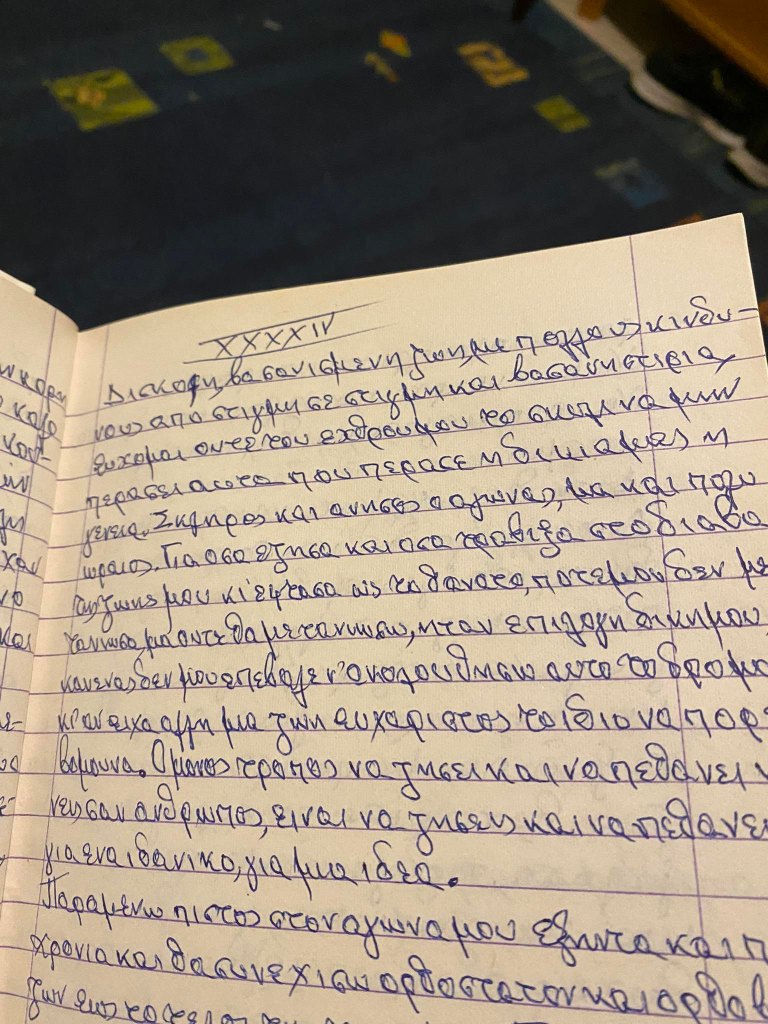 XXXXIV
Δισκοφη, βασανισμενη ζωη, με πολλους κινδυ-
νους απο στιγμη σε στιγμη και βασανηστιρια,
ευχομαι ουτε του εχθρου μου το σκυλι να μην
περασει αυτο που περασε η δικια μας η
γενεια. Σκληρος και ανησος ο αγωνας, μα και πολυ
ωραιος. Για οσα εζησα και οσα τραβιξα στο διαβα
της ζωης μου κι' εφτασα ως το θανατο, ποτε μου δεν με
τανιωσα μα ουτε θα μετανιωσω, ηταν επιλογη δικη μου
κανενας δεν μου επεβαλε ν' ακολουθησω αυτο το δρομο
κι αν ειχα αλλη μια ζωη ευχαριστος το ιδιο να πορ
βομουνα. Ο μονος τροπος να ζησει και να πεθανει
νεις σαν ανθρωπος, ειναι να ζησεις και να πεθανει
για ενα ιδανικο, για μια ιδεα.
Παραμενω πιστος στον αγωνα μου εξηντα και π
χρονια και θα συνεχισω ορθοστατον και ορθοβ
ζων εως το τελος